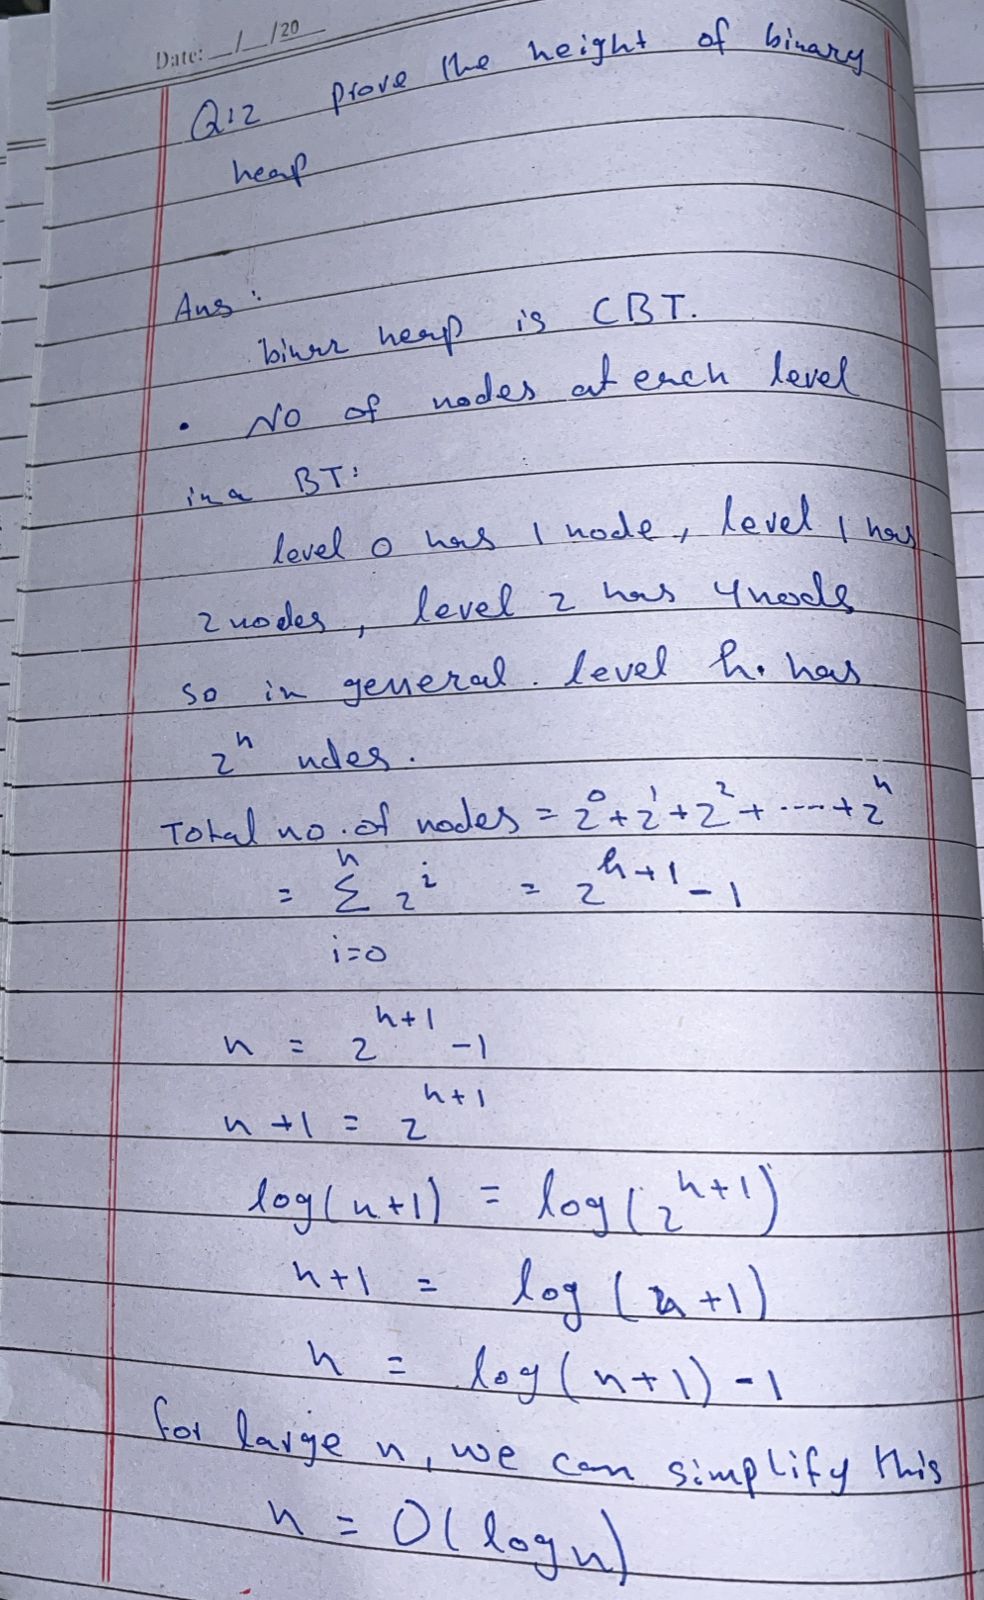 Date: _/_/20
Q12 prove the height of binary
heap
Ans:
heap is CBT.
• No of nodes at each level
in a BT:
level 0 has 1 node, level 1 has
2 nodes, level 2 has 4 nods
so in general. level h. has
2^h ndes.
Total no. of nodes = 2^0 + 2^1 + 2^2 + ---- + 2^h
= Σ_{i=0}^{h} 2^i = 2^{h+1} - 1
n = 2^{h+1} - 1
n + 1 = 2^{h+1}
log(n+1) = log(2^{h+1})
h+1 = log(n+1)
h = log(n+1) - 1
for large n, we can simplify this
h = O(log n)